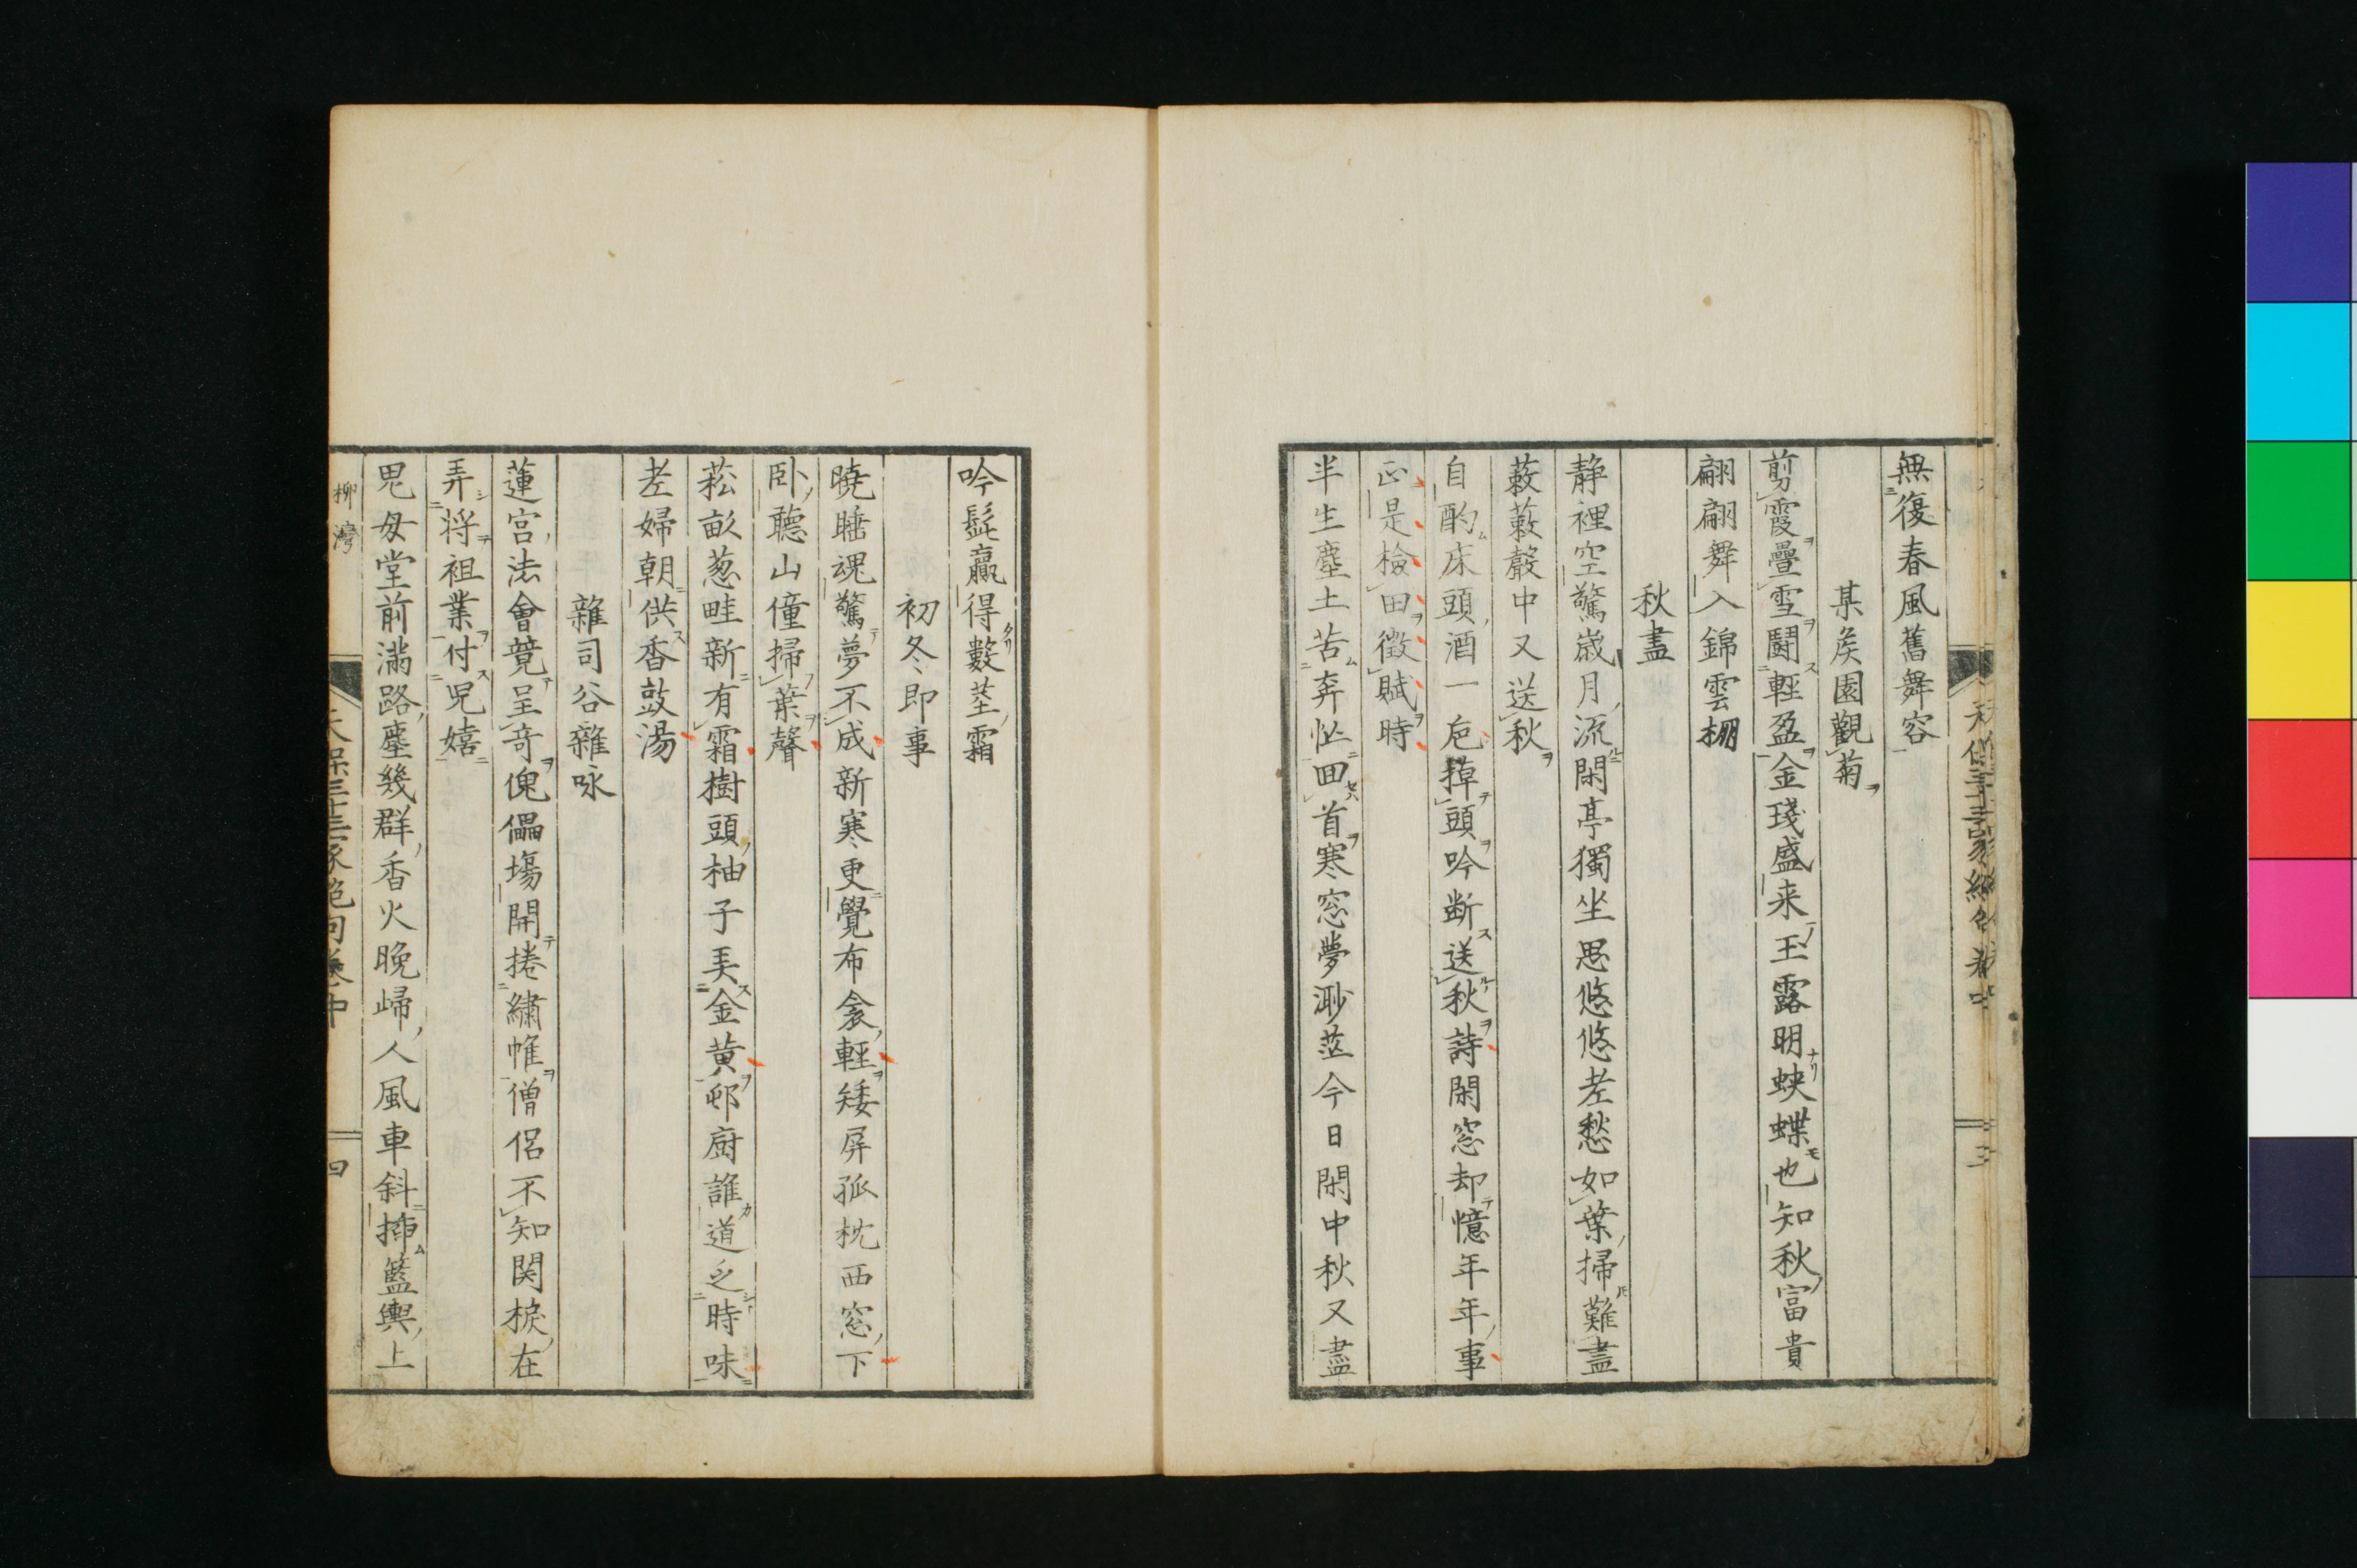 無復春風舊舞容
某侯園觀菊
剪霞疊雪鬪輕盈金琖盛来玉露明蛺蝶也知秋富貴
翩翩舞入錦雲棚
秋盡
静裡空驚歳月流閑亭獨坐思悠悠老愁如葉掃難盡
蔌蔌聲中又送秋
自酌床頭酒一卮掉頭吟断送秋詩閑窓却憶年年事
正是檢田徴賦時
半生塵土苦奔忙回首寒窓夢渺茫今日閑中秋又盡
吟髭贏得數莖霜
初冬即事
曉睡魂驚夢不成新寒更覺布衾輕矮屏孤枕西窓下
臥聽山僮掃葉聲
菘畝葱畦新有霜樹頭柚子美金黄邨厨誰道乏時味
老婦朝供香豉湯
雜司谷雜咏
蓮宮法會競呈奇傀儡塲開捲繡帷僧侶不知関棙在
弄将祖業付児嬉
鬼母堂前満路塵幾群香火晩歸人風車斜挿籃輿上
柳灣
天保三十三家絶句巻中
四